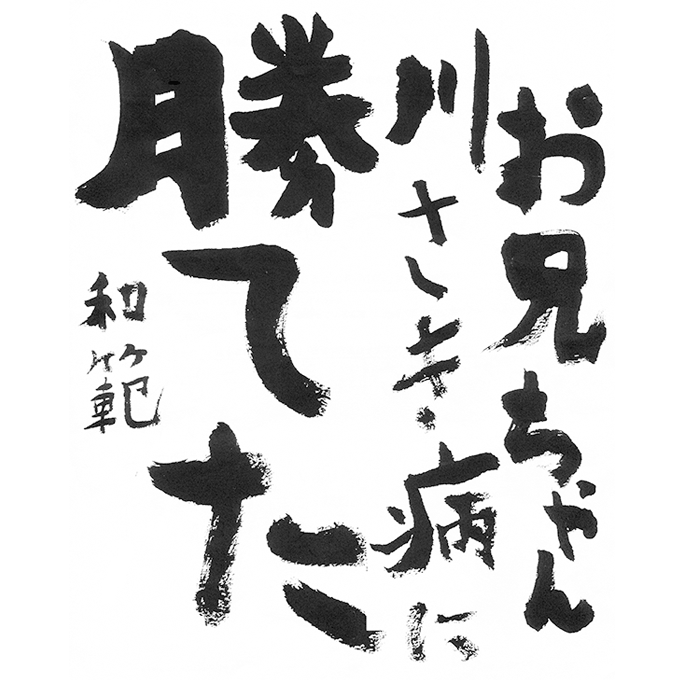 お兄ちゃん
川さき病に
勝てた
和範